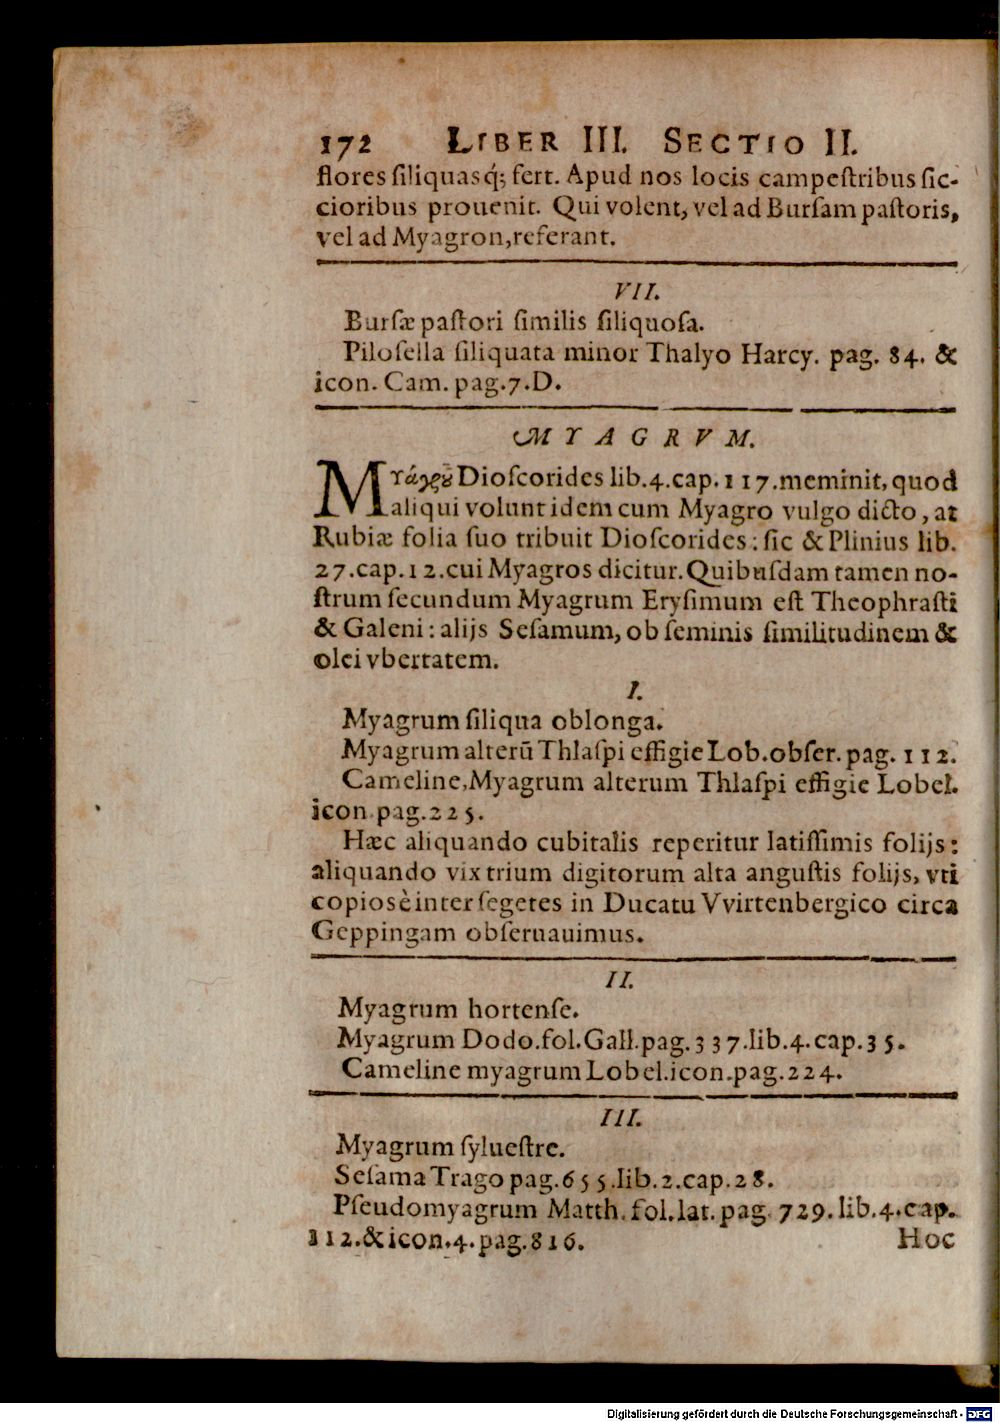 172 LIBER III. SECTIO II.
flores ſiliquasq́; fert. Apud nos locis campeſtribus ſic-
cioribus prouenit. Qui volent, vel ad Burſam paſtoris,
vel ad Myagron, referant.
VII.
Burſæ paſtori ſimilis ſiliquoſa.
Piloſella ſiliquata minor Thalyo Harcy. pag. 84. &
icon. Cam. pag. 7. D.
MYAGRVM.
Mυάγρȣ͂ Dioſcorides lib. 4. cap. 117. meminit, quod
aliqui volunt idem cum Myagro vulgo dicto, at
Rubiæ folia ſuo tribuit Dioſcorides: ſic & Plinius lib.
27. cap. 12. cui Myagros dicitur. Quibuſdam tamen no-
ſtrum ſecundum Myagrum Eryſimum eſt Theophraſti
& Galeni: alijs Seſamum, ob ſeminis ſimilitudinem &
olei vbertatem.
I.
Myagrum ſiliqua oblonga.
Myagrum alterũ Thlaſpi effigie Lob. obſer. pag. 112.
Cameline, Myagrum alterum Thlaſpi effigie Lobel.
icon pag. 225.
Hæc aliquando cubitalis reperitur latiſſimis folijs:
aliquando vix trium digitorum alta anguſtis folijs, vti
copiosè inter ſegetes in Ducatu Vvirtenbergico circa
Geppingam obſeruauimus.
II.
Myagrum hortenſe.
Myagrum Dodo. fol. Gall. pag. 337. lib. 4. cap. 35.
Cameline myagrum Lobel. icon. pag. 224.
III.
Myagrum ſylueſtre.
Seſama Trago pag. 655. lib. 2. cap. 28.
Pſeudomyagrum Matth. fol. lat. pag. 729. lib. 4. cap.
112. & icon. 4. pag. 816.
Hoc
Digitalisierung gefördert durch die Deutsche Forschungsgemeinschaft - DFG